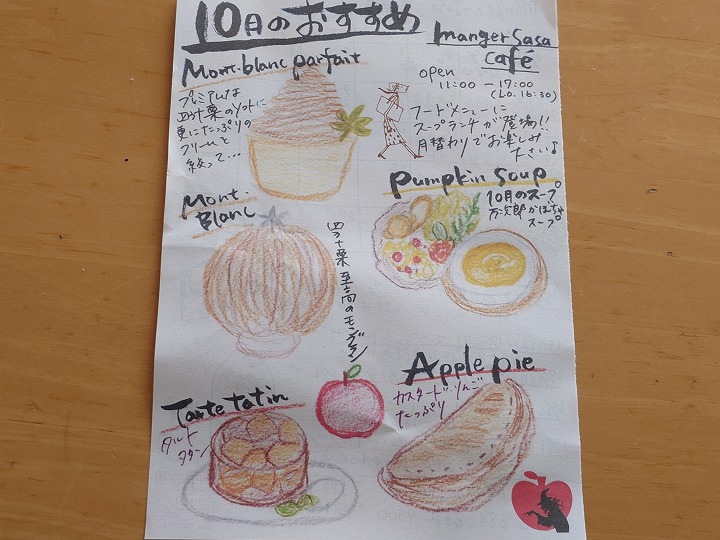 10月のおすすめ
manger sasa
café
open
11:00 − 17:00
(Lo. 16:30)
フードメニューに
スープランチが登場!!
月替わりでお楽しみ
下さい♪
Mont.blanc parfait
プレミアムな
四万十栗のソフトに
更にたっぷりの
クリームを
絞って…
Pumpkin soup
10月のスープ
万次郎かぼちゃ
スープ
Mont.
Blanc
四万十栗 至高のモンブラン
Apple pie
カスタード・りんご
たっぷり
Tarte tatin
タルト
タタン